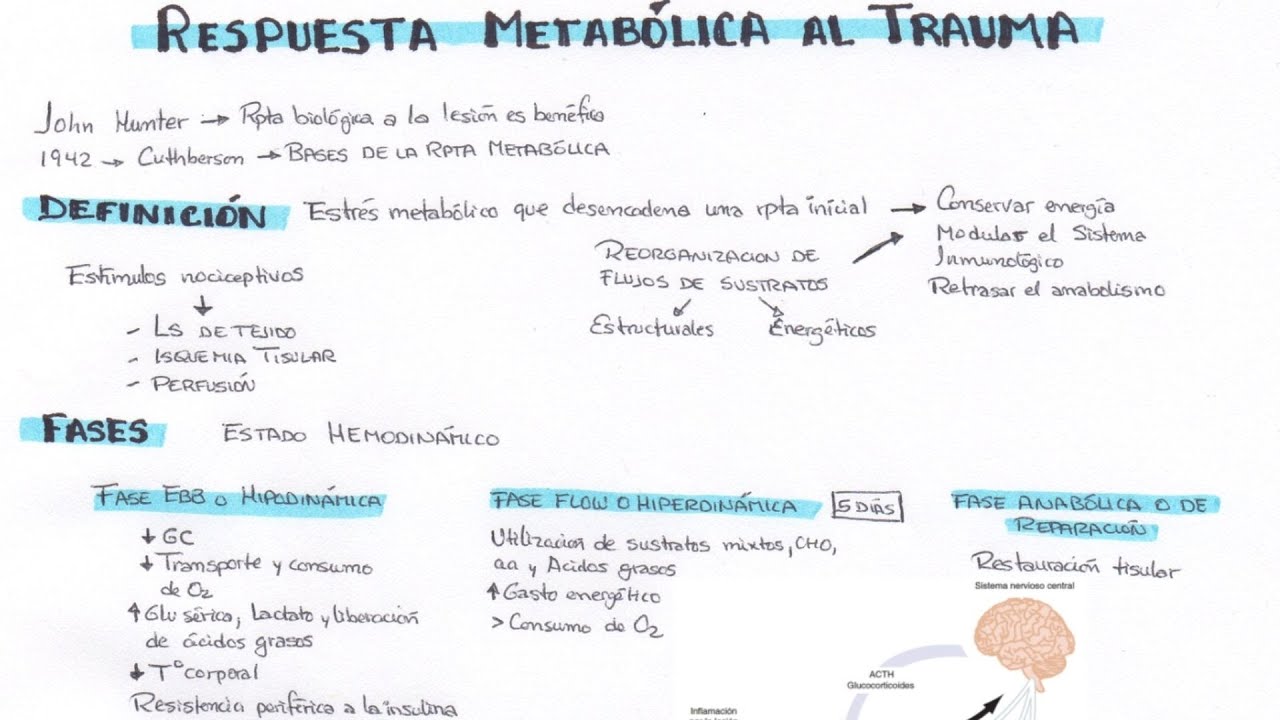 RESPUESTA METABÓLICA AL TRAUMA
John Hunter → Rpta biológica a la lesión es benéfica
1942 → Cuthberson → BASES DE LA RPTA METABÓLICA
DEFINICIÓN Estrés metabólico que desencadena una rpta inicial → Conservar energía
Modular el Sistema
Inmunológico
Retrasar el anabolismo
REORGANIZACION DE
FLUJOS DE SUSTRATOS
Estructurales Energéticos
Estímulos nociceptivos
↓
- LS DE TEJIDO
- ISQUEMIA TISULAR
- PERFUSIÓN
FASES ESTADO HEMODINÁMICO
FASE EBB O HIPODINÁMICA
↓ GC
↓ Transporte y consumo
de O2
↑ Glu sérica, Lactato y liberación
de ácidos grasos
↓ T° corporal
Resistencia periférica a la insulina
FASE FLOW O HIPERDINÁMICA 5 DÍAS
Utilizacion de sustratos mixtos, CHO,
aa y Acidos grasos
↑ Gasto energético
> Consumo de O2
FASE ANABÓLICA O DE
REPARACIÓN
Restauración tisular
Sistema nervioso central
ACTH
Glucocorticoides
Inflamación